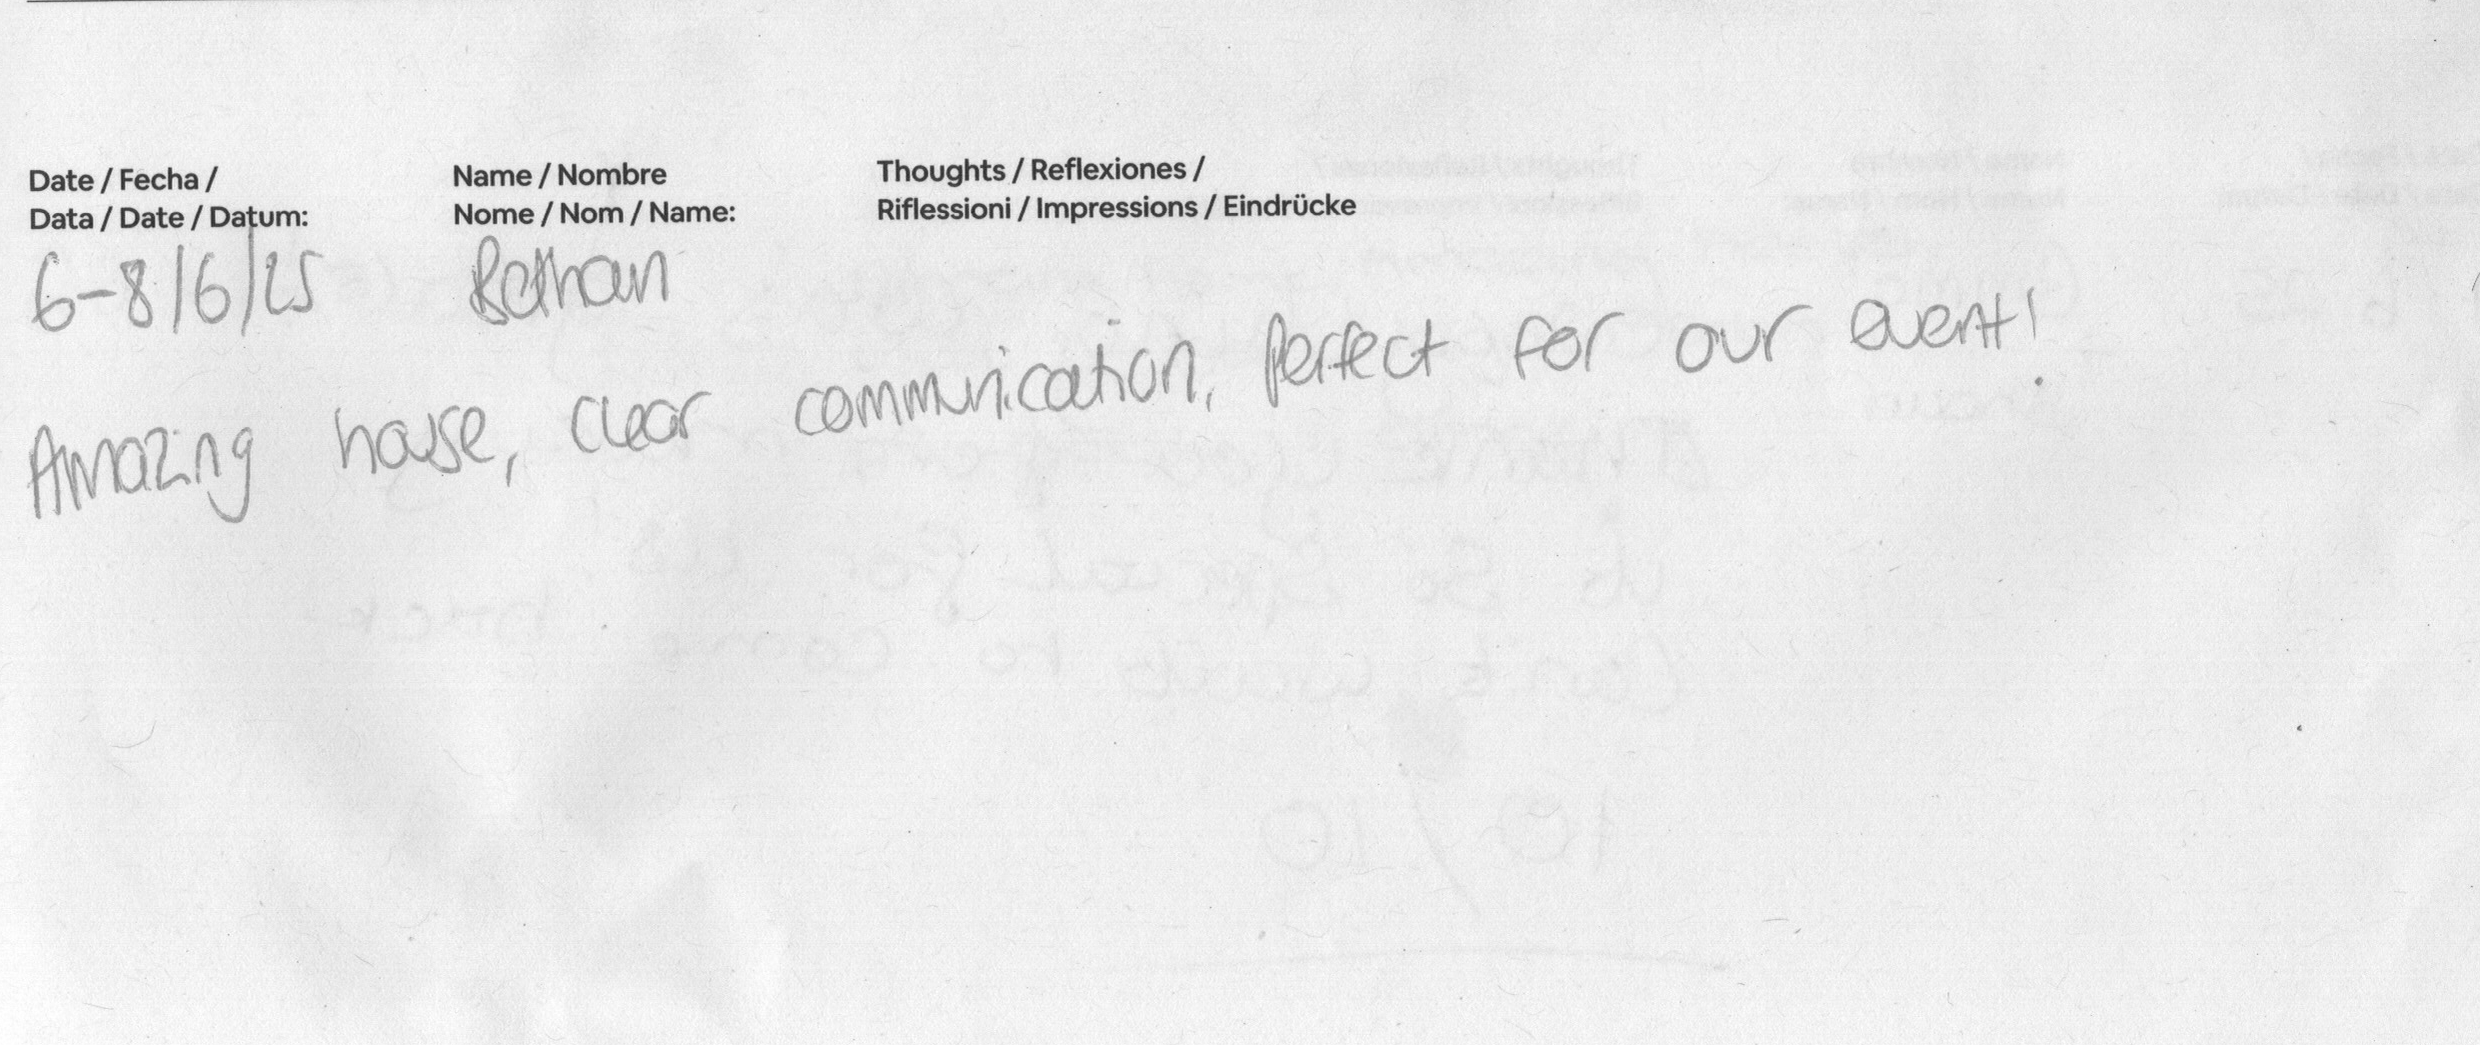 Date / Fecha /
Data / Date / Datum:
Name / Nombre
Nome / Nom / Name:
Thoughts / Reflexiones /
Riflessioni / Impressions / Eindrücke
6-8/6/25
Bethan
Amazing house, clear communication, perfect for our event!